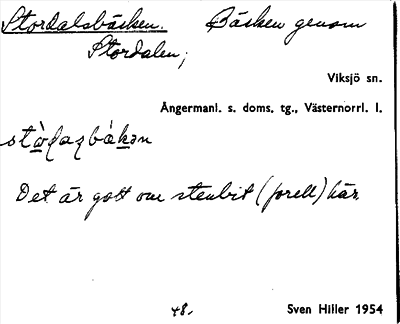 Stordalsbäcken. Bäcken genom
Stordalen;
Viksjö sn.
Ångermanl. s. doms. tg., Västernorrl. l.
Det är gott om stenbit (forell) här.
48.
Sven Hiller 1954